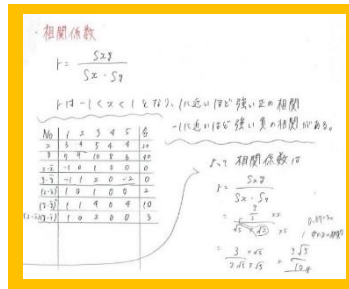 相関係数
r = Sxy / Sx・Sy
rは -1 < x < 1 となり、1に近いほど強い正の相関
-1に近いほど強い負の相関がある。
No 1 2 3 4 5 合
x 3 4 5 4 4 20
y 10 8 6 40
x-x̄ -1 0 1 0 0 0
y-ȳ -1 1 2 0 -2 0
(x-x̄)² 1 0 1 0 0 2
(y-ȳ)² 1 1 4 0 4 10
(x-x̄)(y-ȳ) 1 0 2 0 0 3
よって 相関係数は
r = Sxy / Sx・Sy
= 3√5 / 10